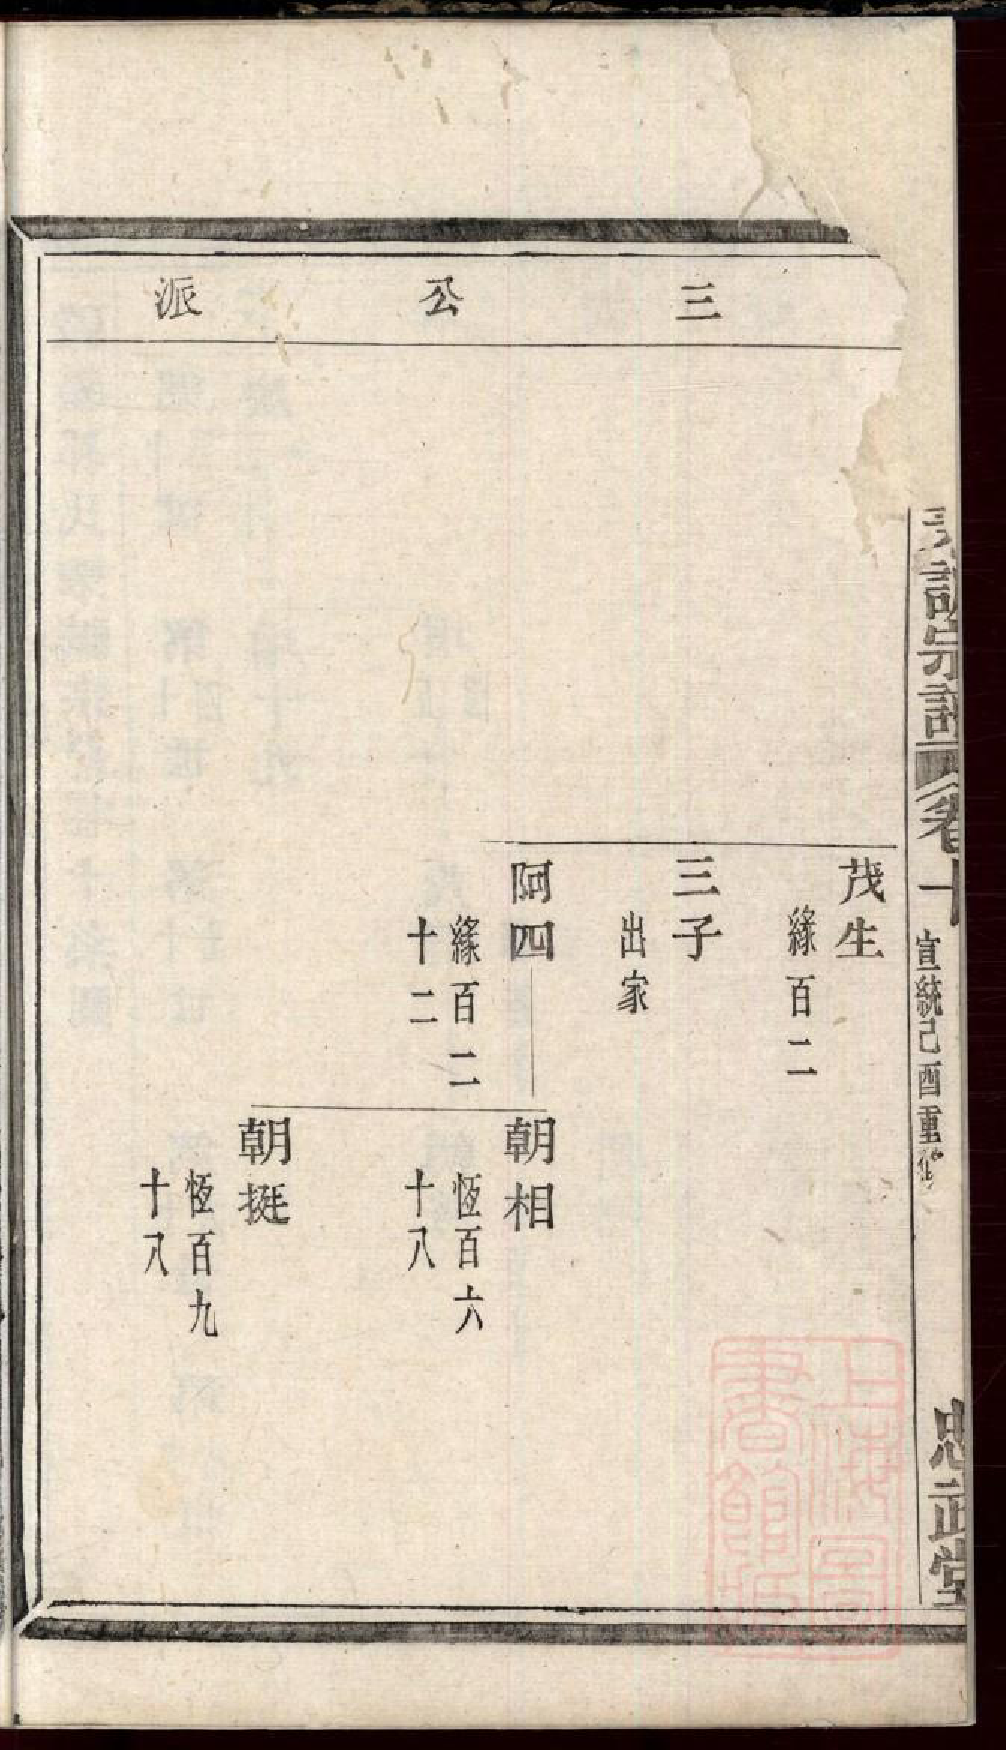 三公派
氏宗譜
卷十
宣統己酉重修
忠武堂
茂生
緣百二
三子
出家
阿四
緣百二
十二
朝相
恆百六
十八
朝挺
恆百九
十八
上海圖
書館藏